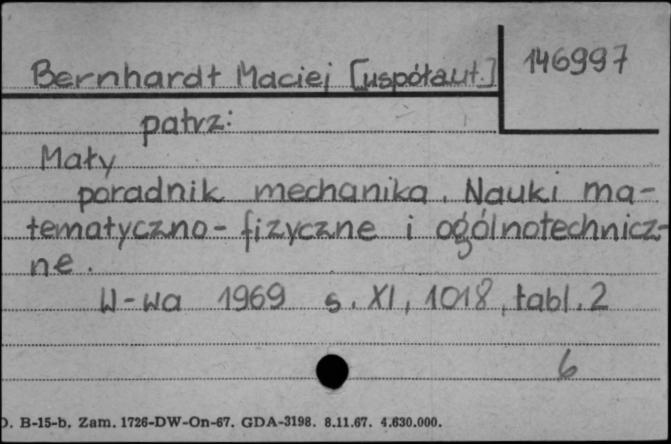 146997
Bernhardt Maciej [współaut.]
patrz:
Mały
poradnik mechanika. Nauki ma-
tematyczno-fizyczne i ogólnotechnicz-
ne.
W-wa 1969 s. XI, 1018, tabl. 2
6
B-15-b. Zam. 1726-DW-On-67. GDA-3198. 8.11.67. 4.630.000.